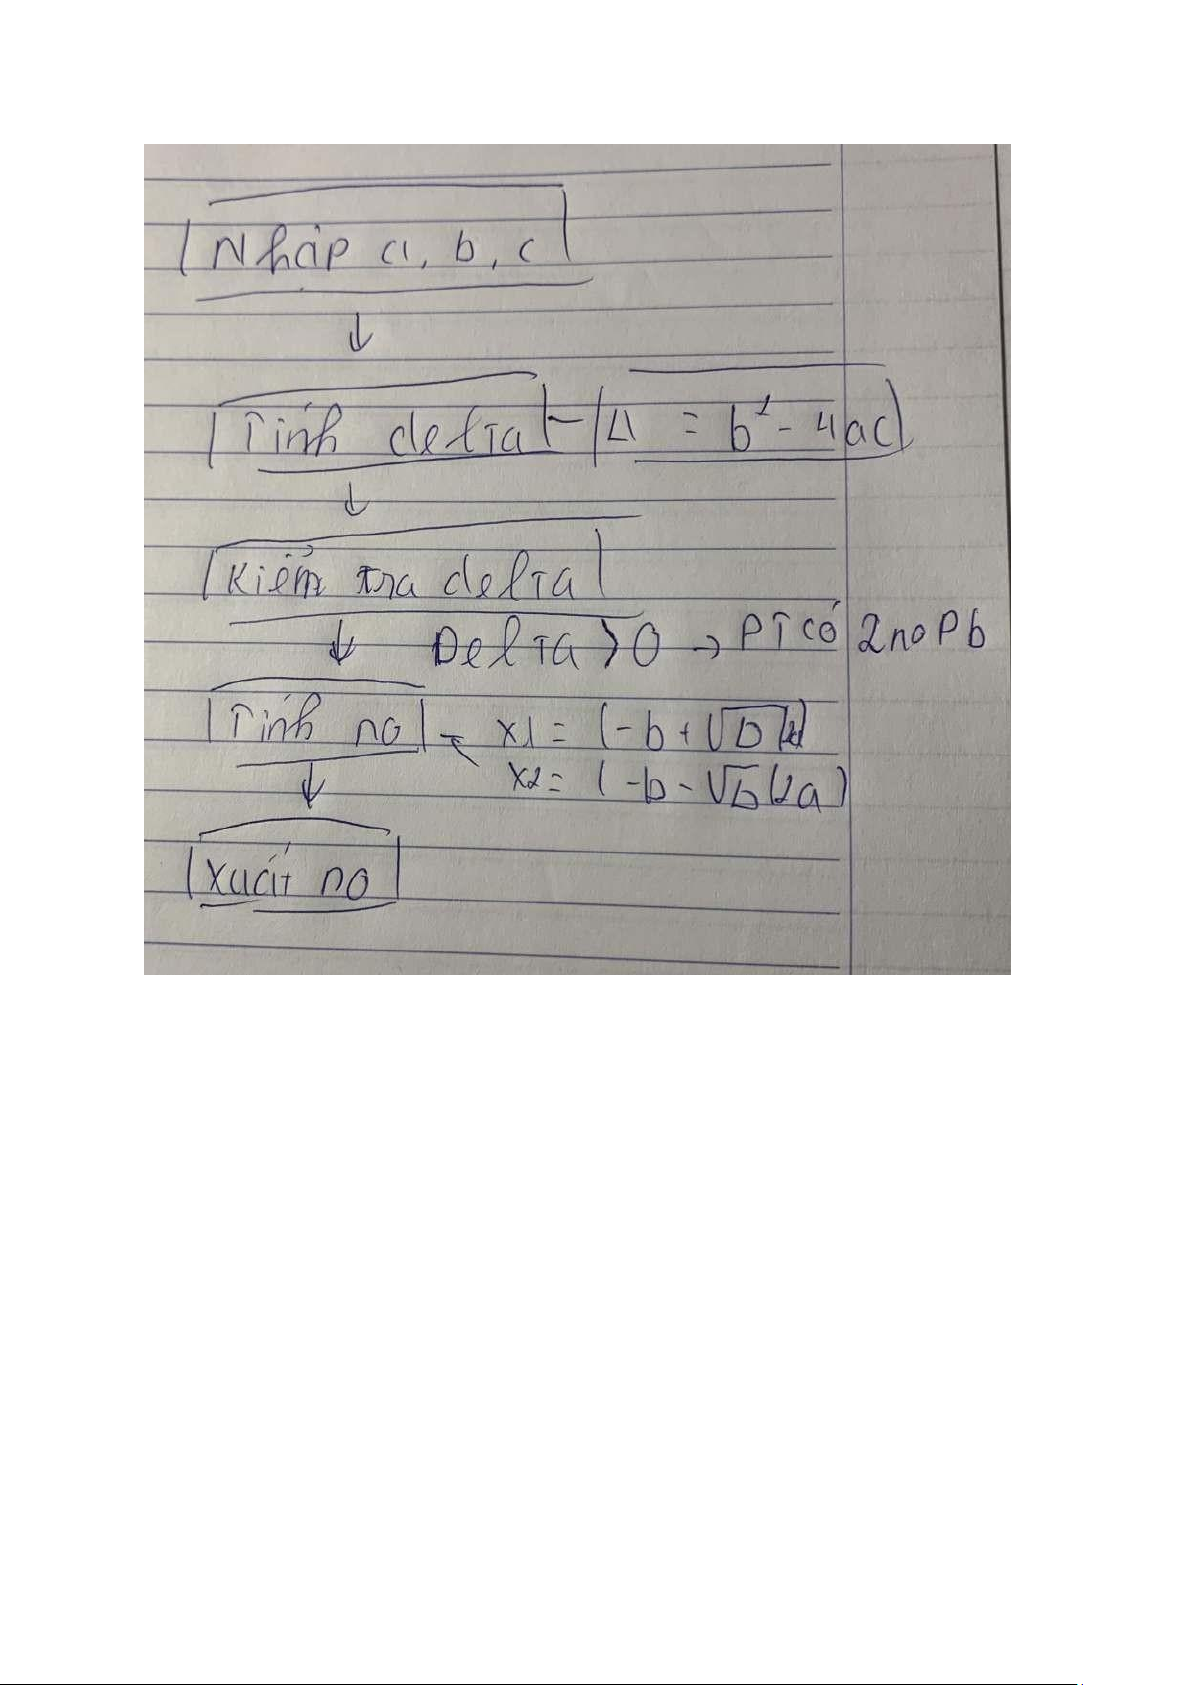 Nhập a, b, c
↓
Tính delta - Δ = b² - 4ac
↓
Kiểm tra delta
↓ Delta > 0 → PT có 2 no Pb
Tính no - x1 = (-b + √D
x2 = (-b - √D (2a)
↓
Xuất no